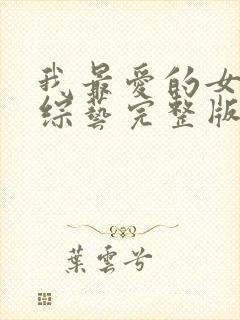 我最爱的女
综藝完整版
葉雲兮